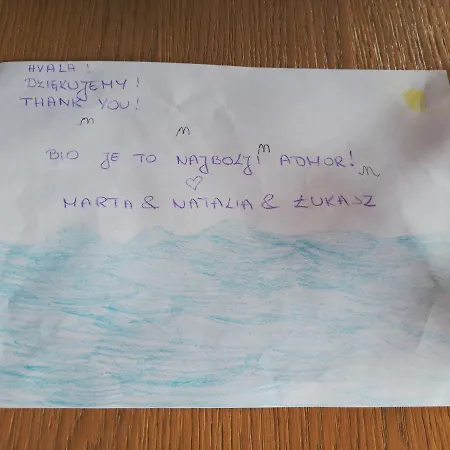 HVALA!
DZIĘKUJEMY!
THANK YOU!
BIO JE TO NAJBOLJI ADMOR!
MARTA & NATALIA & ŁUKASZ